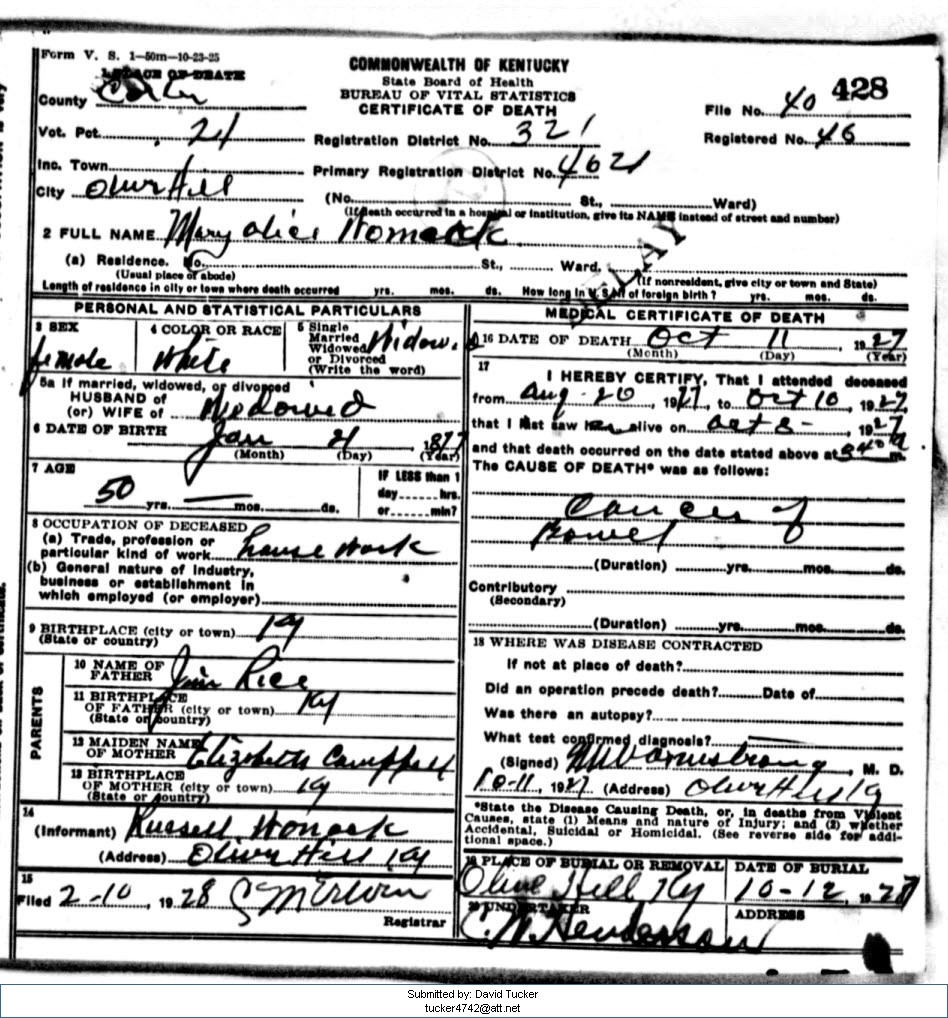 Form V. S. 1—50m—10-23-25
PLACE OF DEATH
COMMONWEALTH OF KENTUCKY
State Board of Health
BUREAU OF VITAL STATISTICS
CERTIFICATE OF DEATH
428
County Carter
File No. 40
Vot. Pct. 21
Registration District No. 321
Registered No. 46
Inc. Town
Primary Registration District No. 4621
City Olive Hill
(No. St., Ward)
(If death occurred in a hospital or institution, give its NAME instead of street and number)
2 FULL NAME Mary Alice Womack
DELAY
(a) Residence. No. St., Ward.
(Usual place of abode) (If nonresident, give city or town and State)
Length of residence in city or town where death occurred yrs. mos. ds. How long in U. S., if of foreign birth? yrs. mos. ds.
PERSONAL AND STATISTICAL PARTICULARS
3 SEX
female
4 COLOR OR RACE
White
5 Single
Married
Widowed
or Divorced
(Write the word)
Widow
5a If married, widowed, or divorced
HUSBAND OF
(or) WIFE of Widowed
6 DATE OF BIRTH Jan 21 1877
(Month) (Day) (Year)
7 AGE
50 yrs. mos. ds.
IF LESS than 1
day hrs.
or min?
8 OCCUPATION OF DECEASED
(a) Trade, profession or
particular kind of work house work
(b) General nature of Industry,
business or establishment in
which employed (or employer)
9 BIRTHPLACE (city or town) Ky
(State or country)
PARENTS
10 NAME OF
FATHER Jim Rice
11 BIRTHPLACE
OF FATHER (city or town) Ky
(State or country)
12 MAIDEN NAME
OF MOTHER Elizabeth Campbell
13 BIRTHPLACE
OF MOTHER (city or town) Ky
(State or country)
14
(Informant) Russell Womack
(Address) Olive Hill Ky
15
Filed 2-10, 1928
Registrar
MEDICAL CERTIFICATE OF DEATH
16 DATE OF DEATH Oct 11 1927
(Month) (Day) (Year)
17
I HEREBY CERTIFY, That I attended deceased
from Aug-20, 1927, to Oct 10, 1927,
that I last saw her alive on Oct 8-, 1927
and that death occurred on the date stated above at m.
The CAUSE OF DEATH* was as follows:
Cancer of
Bowel
(Duration) yrs. mos. ds.
Contributory
(Secondary)
(Duration) yrs. mos. ds.
18 WHERE WAS DISEASE CONTRACTED
If not at place of death?
Did an operation precede death? Date of
Was there an autopsy?
What test confirmed diagnosis?
(Signed) Armstrong, M. D.
10-11, 1927 (Address) Olive Hill Ky
*State the Disease Causing Death, or, in deaths from Violent
Causes, state (1) Means and nature of Injury; and (2) whether
Accidental, Suicidal or Homicidal. (See reverse side for addi-
tional space.)
19 PLACE OF BURIAL OR REMOVAL
Olive Hill Ky
DATE OF BURIAL
10-12, 1927
20 UNDERTAKER
C. W. Henderson
ADDRESS
Submitted by: David Tucker
tucker4742@att.net